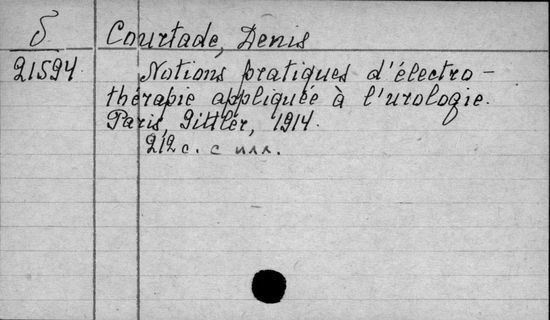 б Courtade, Denis
21594 Notions pratiques d'électro-
thérapie appliquée à l'urologie.
Paris, Gittler, 1914.
212 с. с илл.